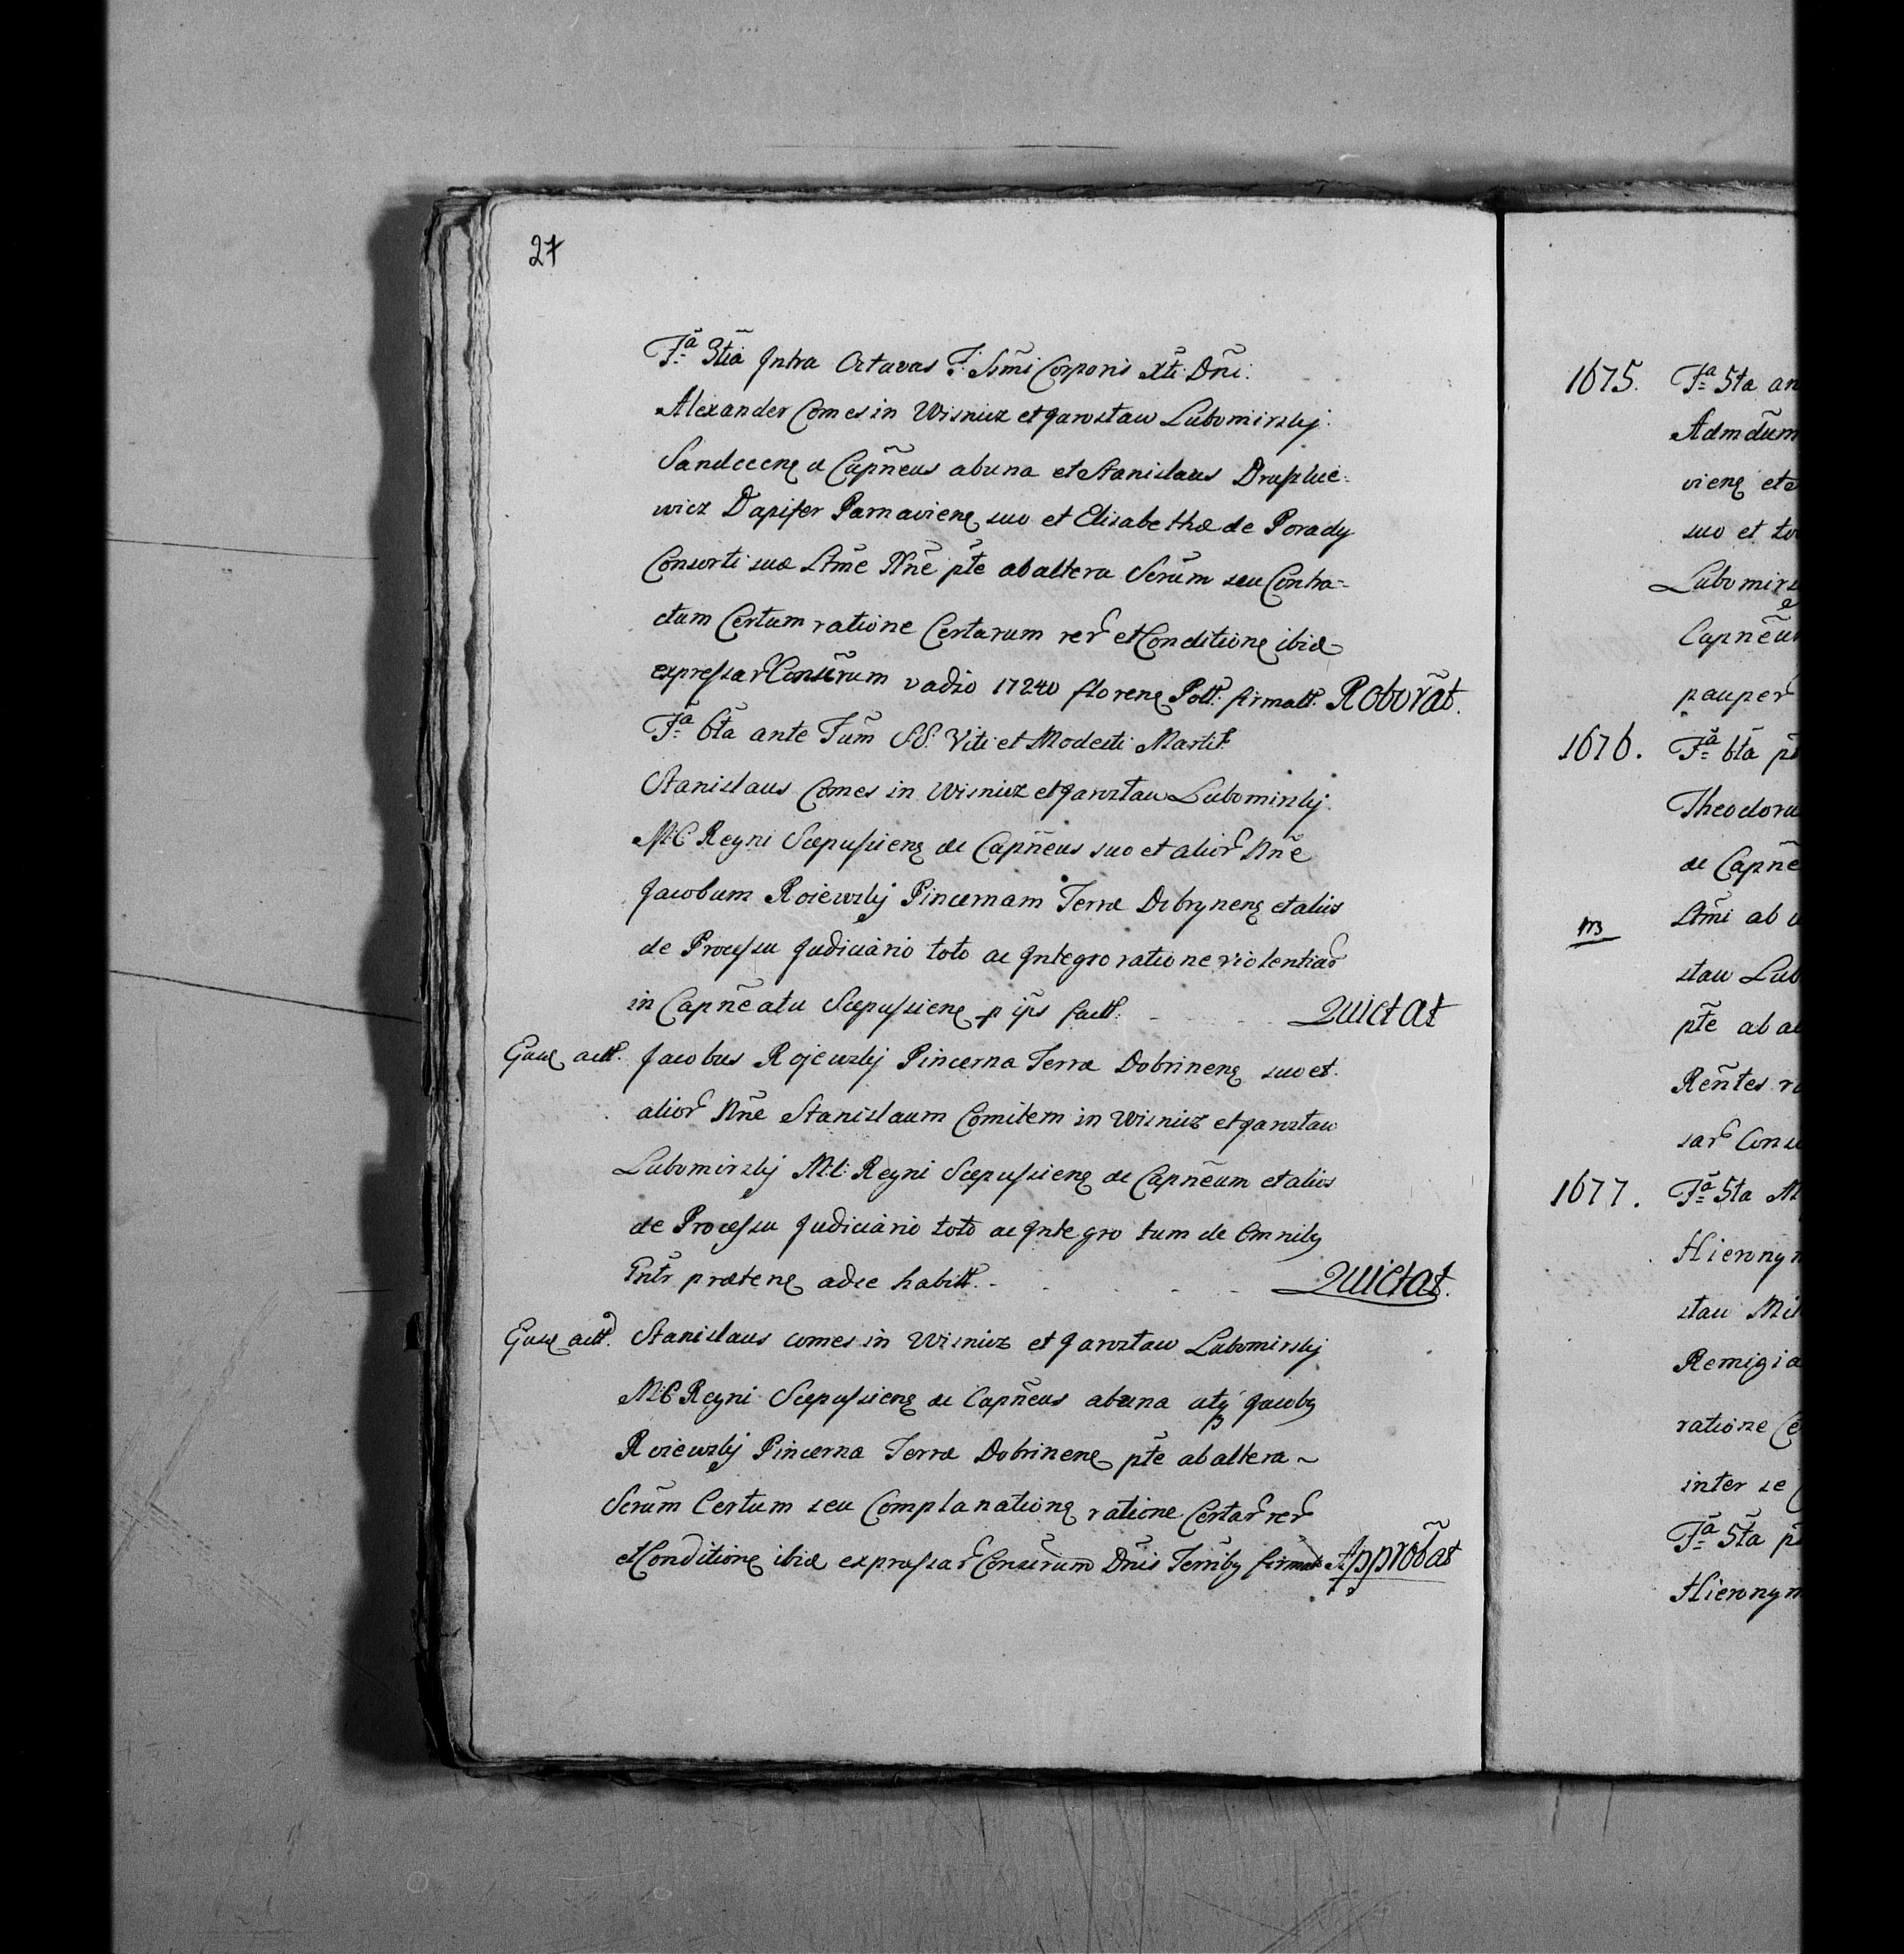 27
Fã 3tia Intra Octavas F: Ssmi Corporis Xti Dni:
Alexander Comes in Wisnicz et Jarosław Lubomirskij
Sandecens ac Capneus ab una et Stanislaus Druszkie-
wicz Dapifer Parnaviens suo et Elisabethæ de Porady
Consorti suæ Lãme Nñe pte ab altera Scrum seu Contra-
ctum Certum ratione Certarum rer et Conditions ibid
expressar Conscrum vadio 17240 florens Poll. firmatt. Roborãt.
Fã 6ta ante Fum S.S. Viti et Modesti Martir
Stanislaus Comes in Wisnicz et Jarosław Lubomirskij
M:C: Regni Scepusiens ac Capneus suo et alior Nñe
Jacobum Roiewskij Pincernam Terræ Dobrynens et alios
de Processu Judiciario toto ac Integro ratione violentiar
in Capneatu Scepusiens p ips fact. Quietat
Eiusd act. Jacobus Rojewskij Pincerna Terræ Dobrinens suo et
alior Nñe Stanislaum Comitem in Wisnicz et Jarosław
Lubomirskij M:C: Regni Scepusiens ac Capneum et alios
de Processu Judiciario toto ac Integro tum de Omnib
Gntr prætens adse habitt. Quietat.
Eiusd act. Stanislaus comes in Wisnicz et Jarosław Lubomirskij
M:C: Regni Scepusiens ac Capneus ab una atq Jacobus
Roiewskij Pincerna Terræ Dobrinens pte ab altera ~
Scrum Certum seu Complanations ratione Certar rer
et Conditions ibid expressar Conscrum Dnis Terrib firmat Approbãt
1675. Fã 5ta an
Admdum
viens et
suo et to
Lubomirs
Capneu
pauper
1676. Fã 6ta p
Theodoru
ac Capne
Lãmi ab u
sław Lub
pte ab a
Rentes r
sar Cons
1677. Fã 5ta
Hieronym
sław Mi
Remigia
ratione Ce
inter se
Fã 5ta p
Hieronym